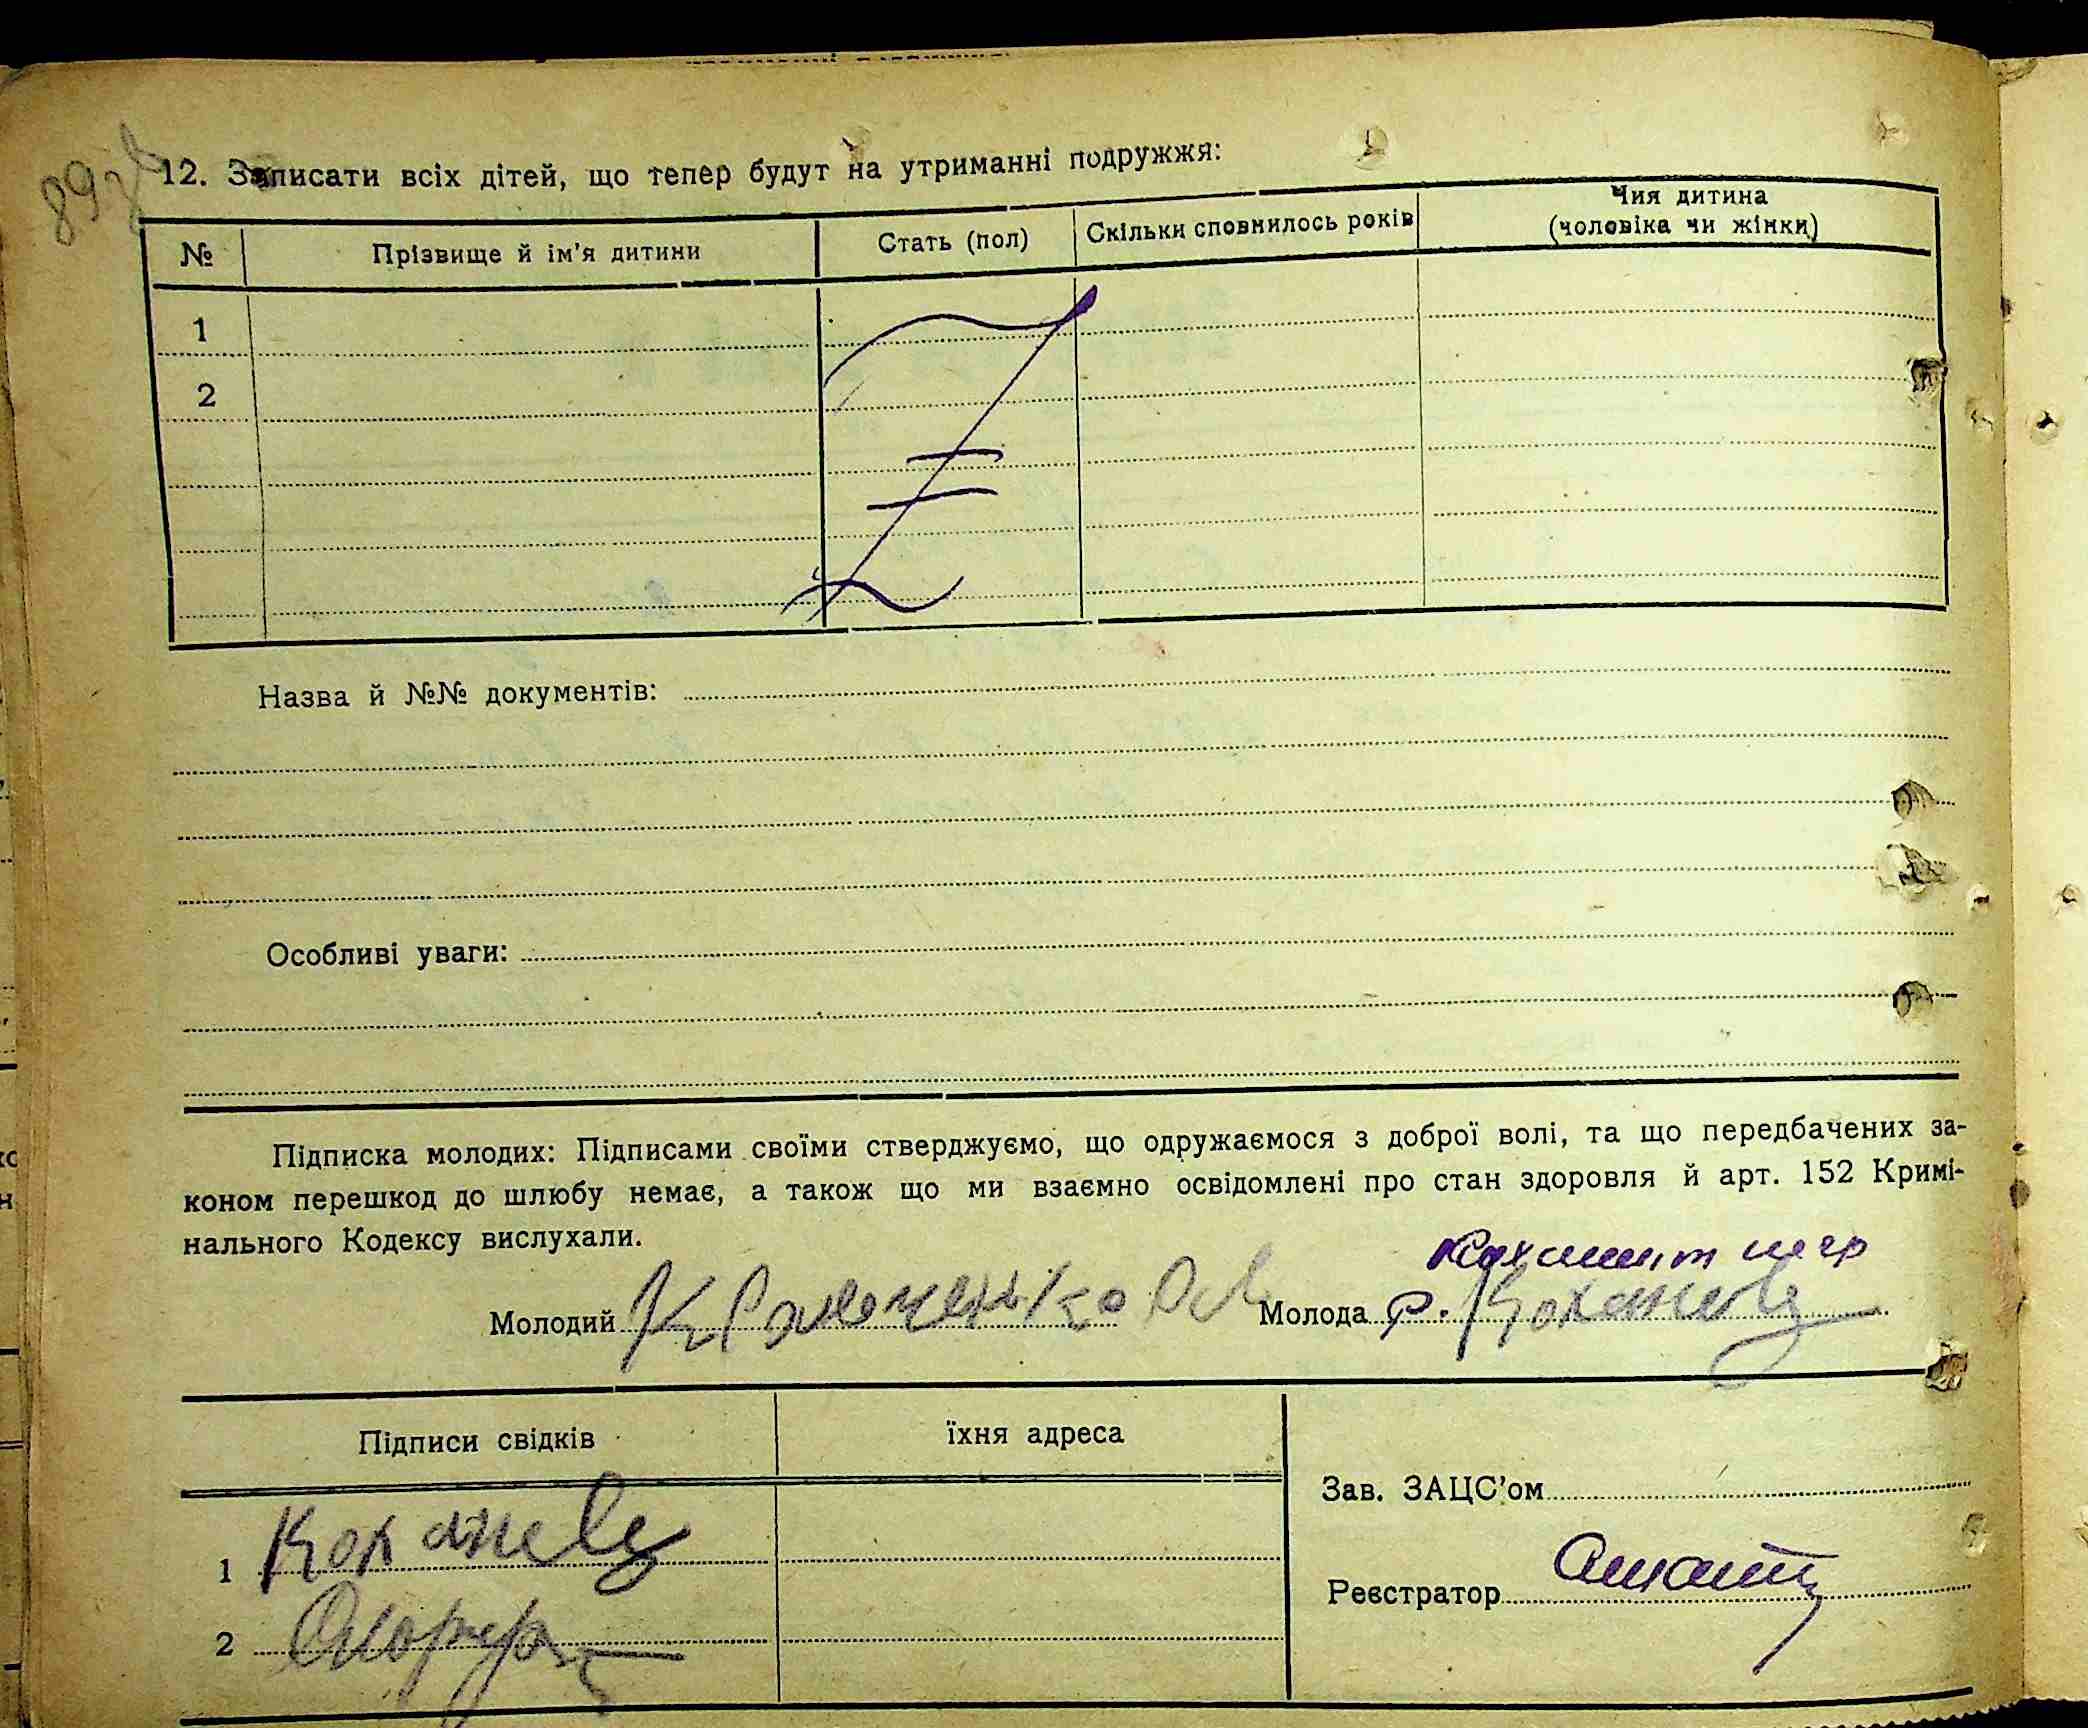 89зв
12. Записати всіх дітей, що тепер будут на утриманні подружжя:
№ Прізвище й ім'я дитини Стать (пол) Скільки сповнилось років Чия дитина (чоловіка чи жінки)
1
2
Назва й №№ документів:
Особливі уваги:
Підписка молодих: Підписами своїми стверджуємо, що одружаємося з доброї волі, та що передбачених за-
коном перешкод до шлюбу немає, а також що ми взаємно освідомлені про стан здоровля й арт. 152 Кримі-
нального Кодексу вислухали.
Молодий Молода
Підписи свідків їхня адреса
Зав. ЗАЦС'ом
1
Реєстратор
2